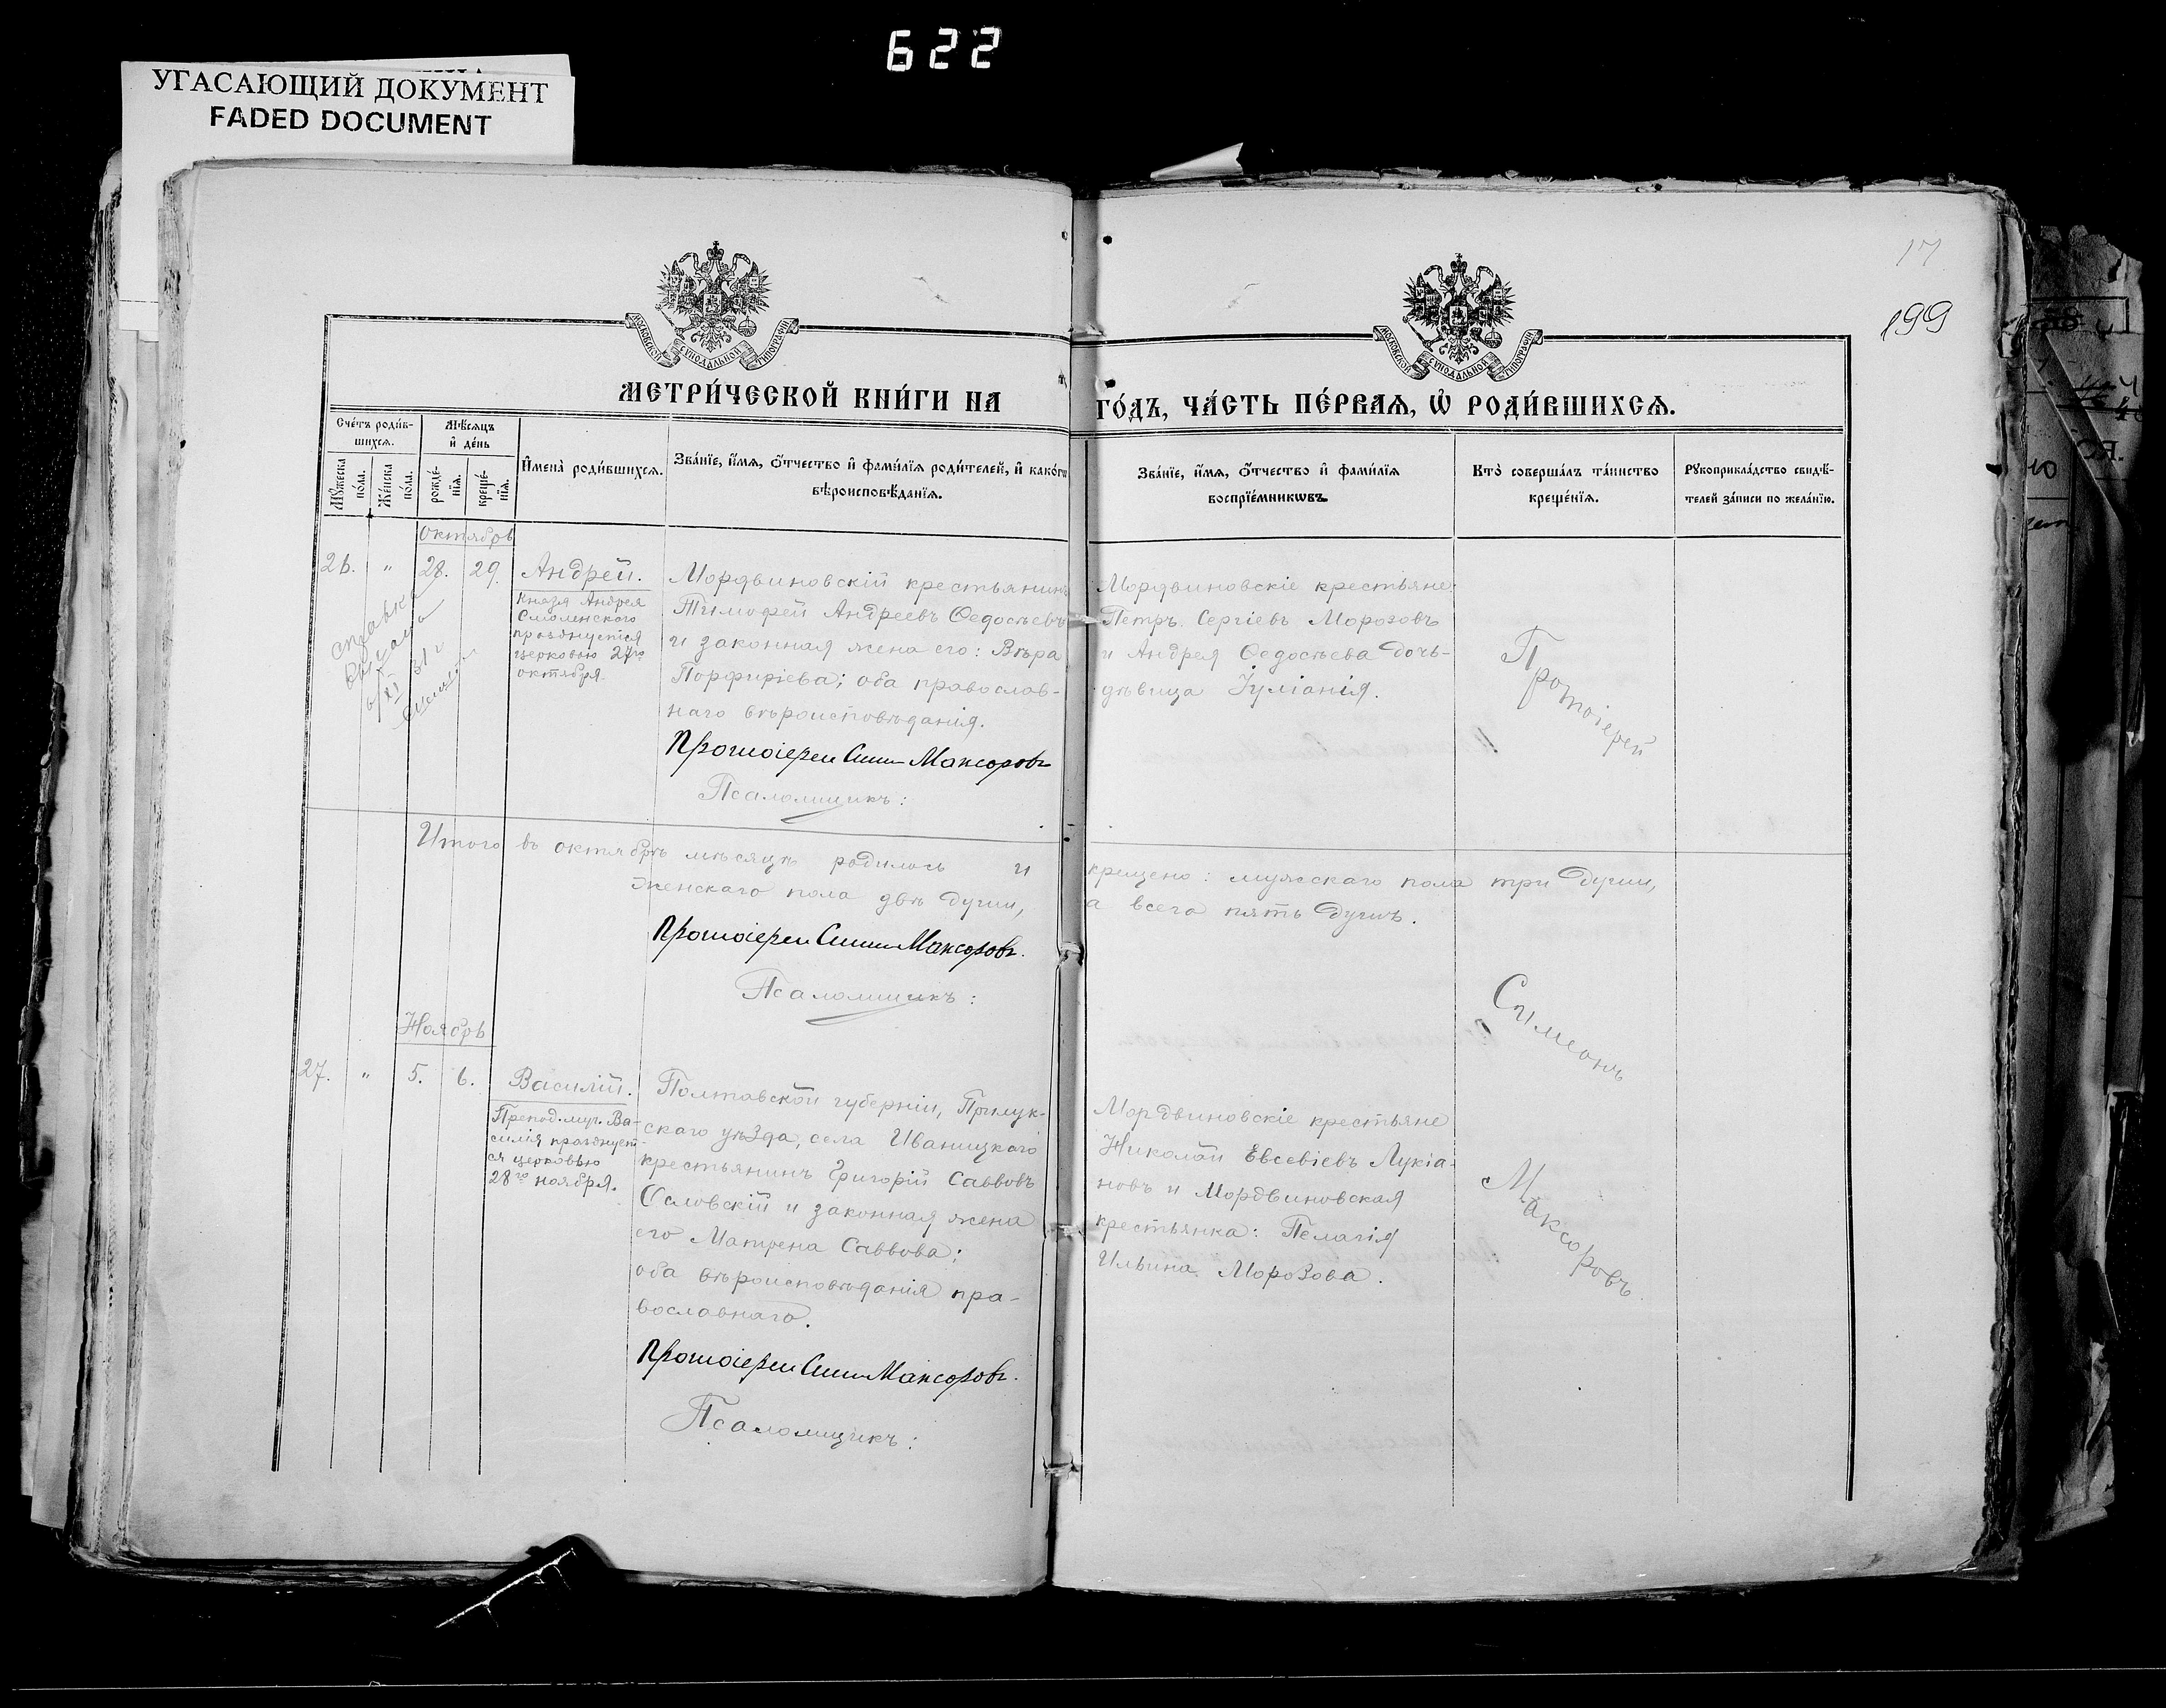 622
УГАСАЮЩИЙ ДОКУМЕНТ
FADED DOCUMENT
17
199
МОСКОВСКОЙ СѴНОДАЛЬНОЙ ТИПОГРАФІИ
МОСКОВСКОЙ СѴНОДАЛЬНОЙ ТИПОГРАФІИ
МЕТРИ́ЧЕСКОЙ КНИ́ГИ НА
ГО́ДЪ, ЧА́СТЬ ПЕ́РВАѦ, Ѡ҆ РОДИ́ВШИХСѦ.
Сче́тъ роди́в-
шихсѧ.
Мꙋ́жеска
по́ла.
Же́нска
по́ла.
Мѣ́сѧцъ
и҆ де́нь
рожде́-
нїѧ.
креще́-
нїѧ.
И҆мена̀ роди́вшихсѧ.
Зва́нїе, и҆́мѧ, ѻ҆́тчество и҆ фами́лїѧ роди́телей, и҆ како́гѡ
вѣроисповѣ́данїѧ.
Зва́нїе, и҆́мѧ, ѻ҆́тчество и҆ фами́лїѧ
воспрїе́мникѡвъ.
Кто̀ соверша́лъ та́инство
креще́нїѧ.
Рꙋкоприкла́дство свидѣ́-
телей за́писи по жела́нїю.
Октябрь
26. " 28. 29. Андрей.
Князя Андрея
Смоленскаго
празднуется
церковью 27го
октября.
справка
выдана
6/XI 31 г
Мордвиновскій крестьянинъ
Тимофей Андреевъ Ѳедосѣевъ
и законная жена его: Вѣра
Порфиріева; оба православ-
наго вѣроисповѣданія.
Протоіерей Симеонъ Максоровъ
Псаломщикъ:
Мордвиновскіе крестьяне:
Петръ Сергіевъ Морозовъ
и Андрея Ѳедосѣева дочь-
дѣвица Іуліанія.
Протоіерей
Итого въ октябрѣ мѣсяцѣ родилось и
крещено: мужскаго пола три души,
женскаго пола двѣ души,
а всего пять душъ.
Протоіерей Симеонъ Максоровъ.
Псаломщикъ:
Симеонъ
Ноябрь
27. " 5. 6. Василій.
Преподмуч. Ва-
силія празднует-
ся церковью
28го ноября.
Полтавской губерніи, Прилук-
скаго уѣзда, села Иваницкаго
крестьянинъ Григорій Саввовъ
Ословскій и законная жена
его Матрена Саввова;
оба вѣроисповѣданія пра-
вославнаго.
Протоіерей Симеонъ Максоровъ.
Псаломщикъ:
Мордвиновскіе крестьяне
Николай Евсевіевъ Лукіа-
новъ и Мордвиновская
крестьянка: Пелагія
Ильина Морозова.
Максоровъ